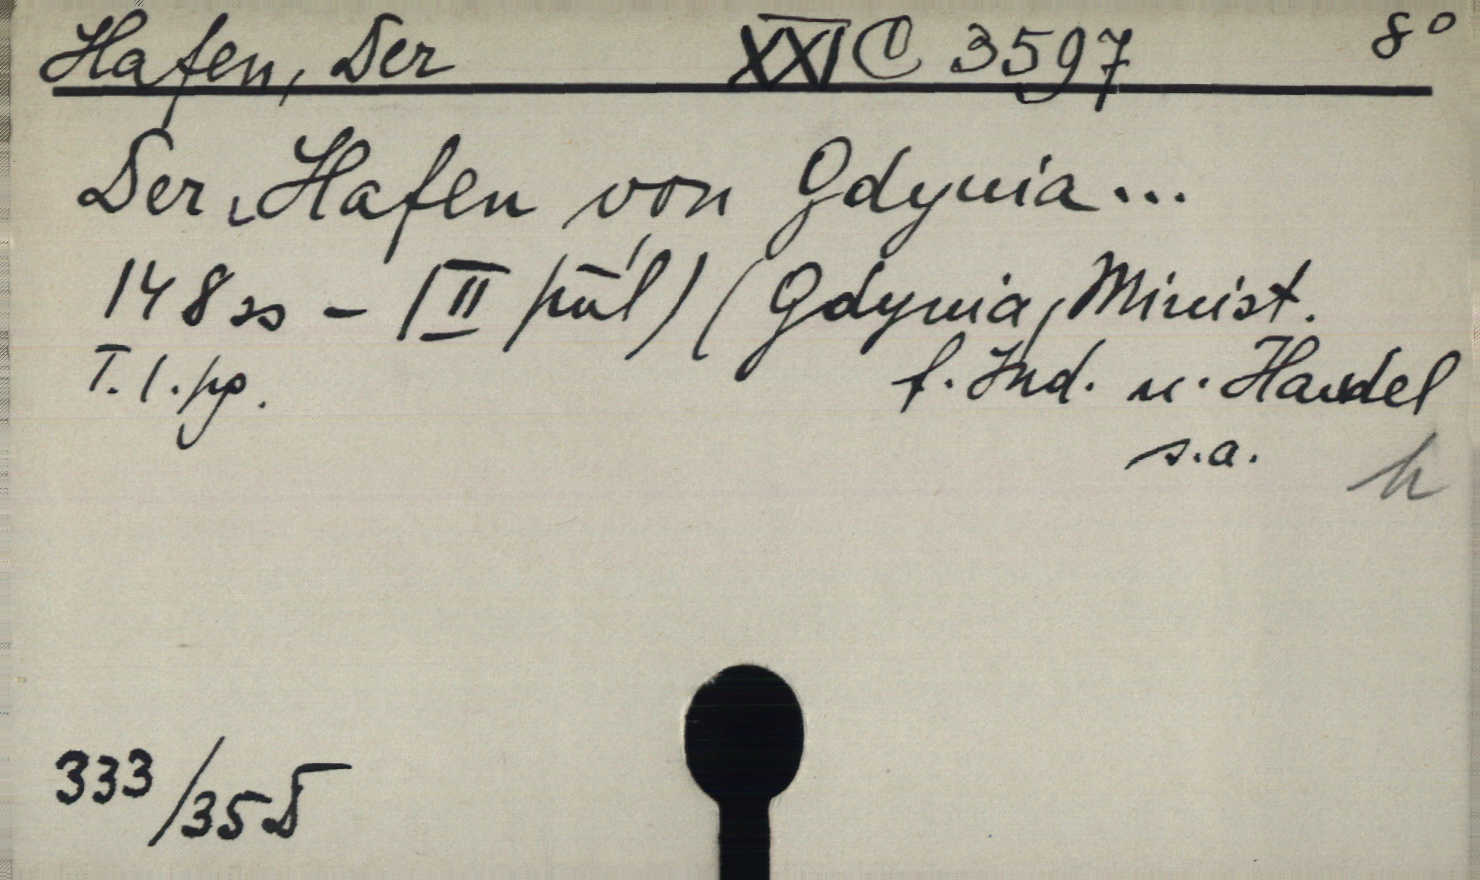 Hafen, Der XXI C 3597 8°
Der Hafen von Gdynia...
148 ss - (II pūl) (Gdynia, Minist.
T. l. pp. f. Ind. u. Handel
s.a. h
333/35 D